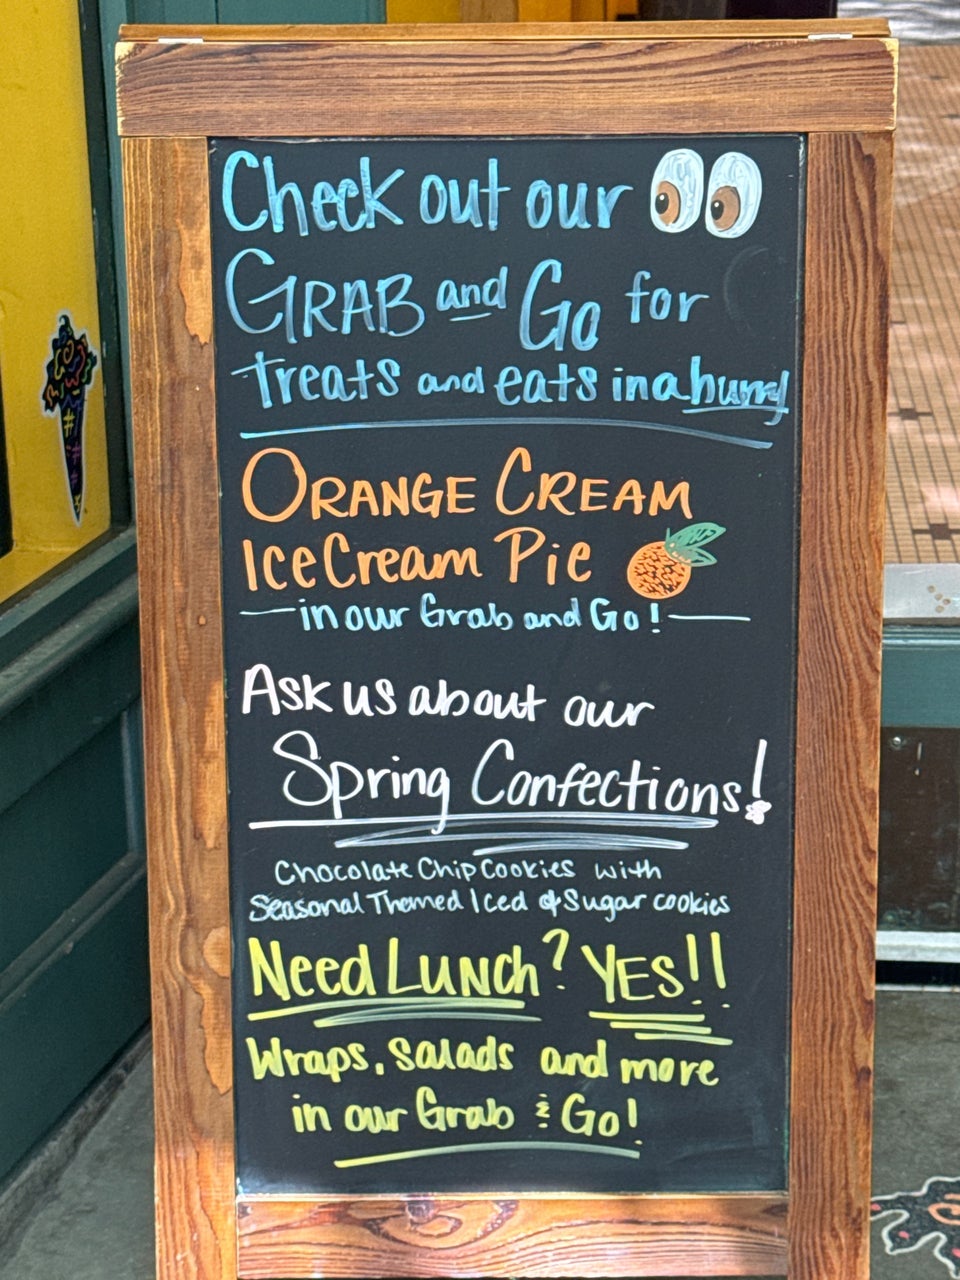 Check out our
GRAB and Go for
treats and eats in a hurry!
ORANGE CREAM
Ice Cream Pie
in our Grab and Go!
Ask us about our
Spring Confections!
Chocolate Chip Cookies with
Seasonal Themed Iced & Sugar cookies
Need LUNCH? YES!!
Wraps, salads and more
in our Grab & Go!